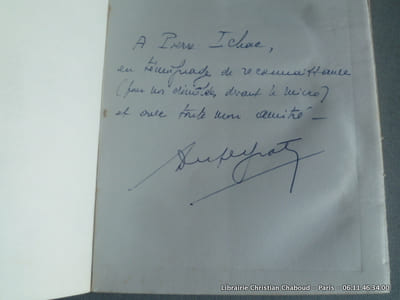 A Pierre Ichac,
en témoignage de reconnaissance
(pour nos démêlés devant le micro)
et avec toute mon amitié _
Librairie Christian Chaboud - Paris 06.11.46.34.00